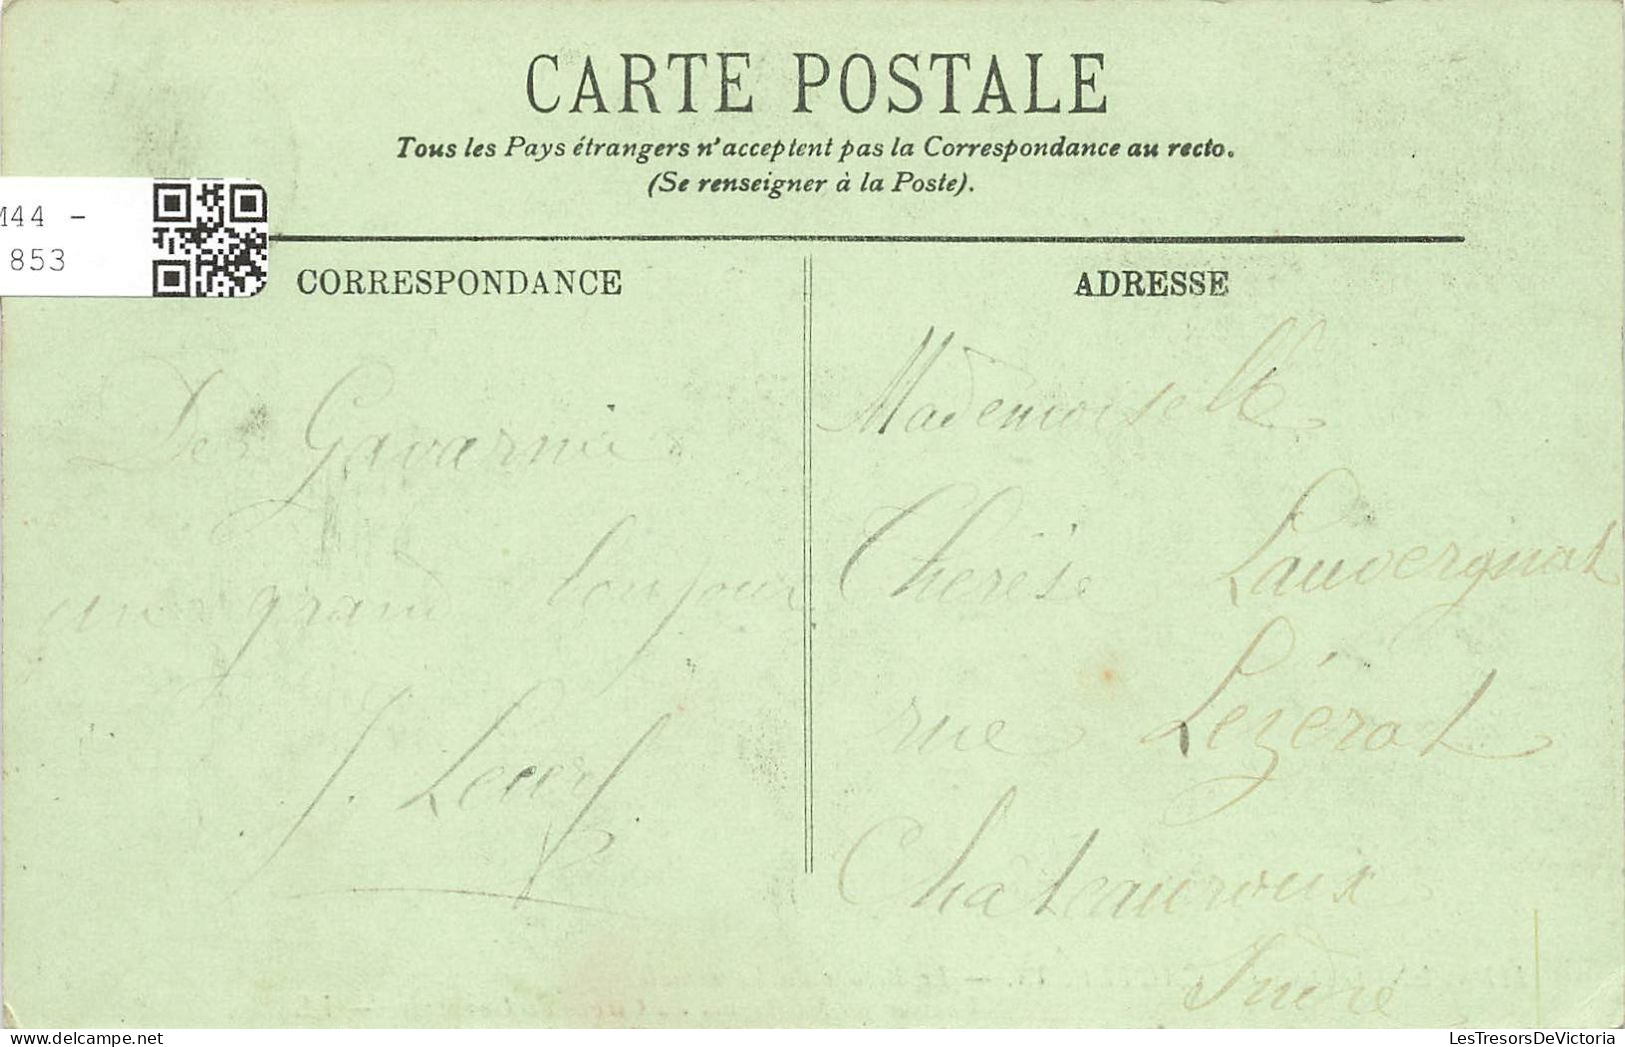 CARTE POSTALE
Tous les Pays étrangers n'acceptent pas la Correspondance au recto.
(Se renseigner à la Poste).
M44 -
853
CORRESPONDANCE
ADRESSE
De Gavarnie
un grand bonjour
J. Lecerf
Mademoiselle
Thérèse Lauvergnat
rue Lézérat
Châteauroux
Indre
LesTresorsDeVictoria